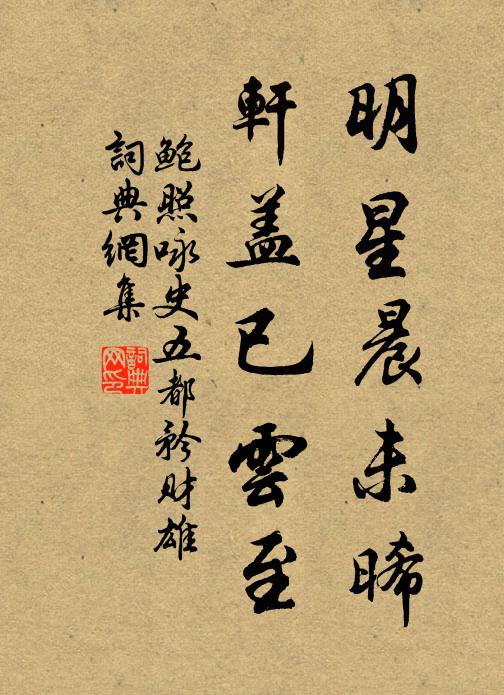 明星晨未晞
軒蓋已雲至
鮑照咏史五都矜財雄
詞典網集
詞典網印